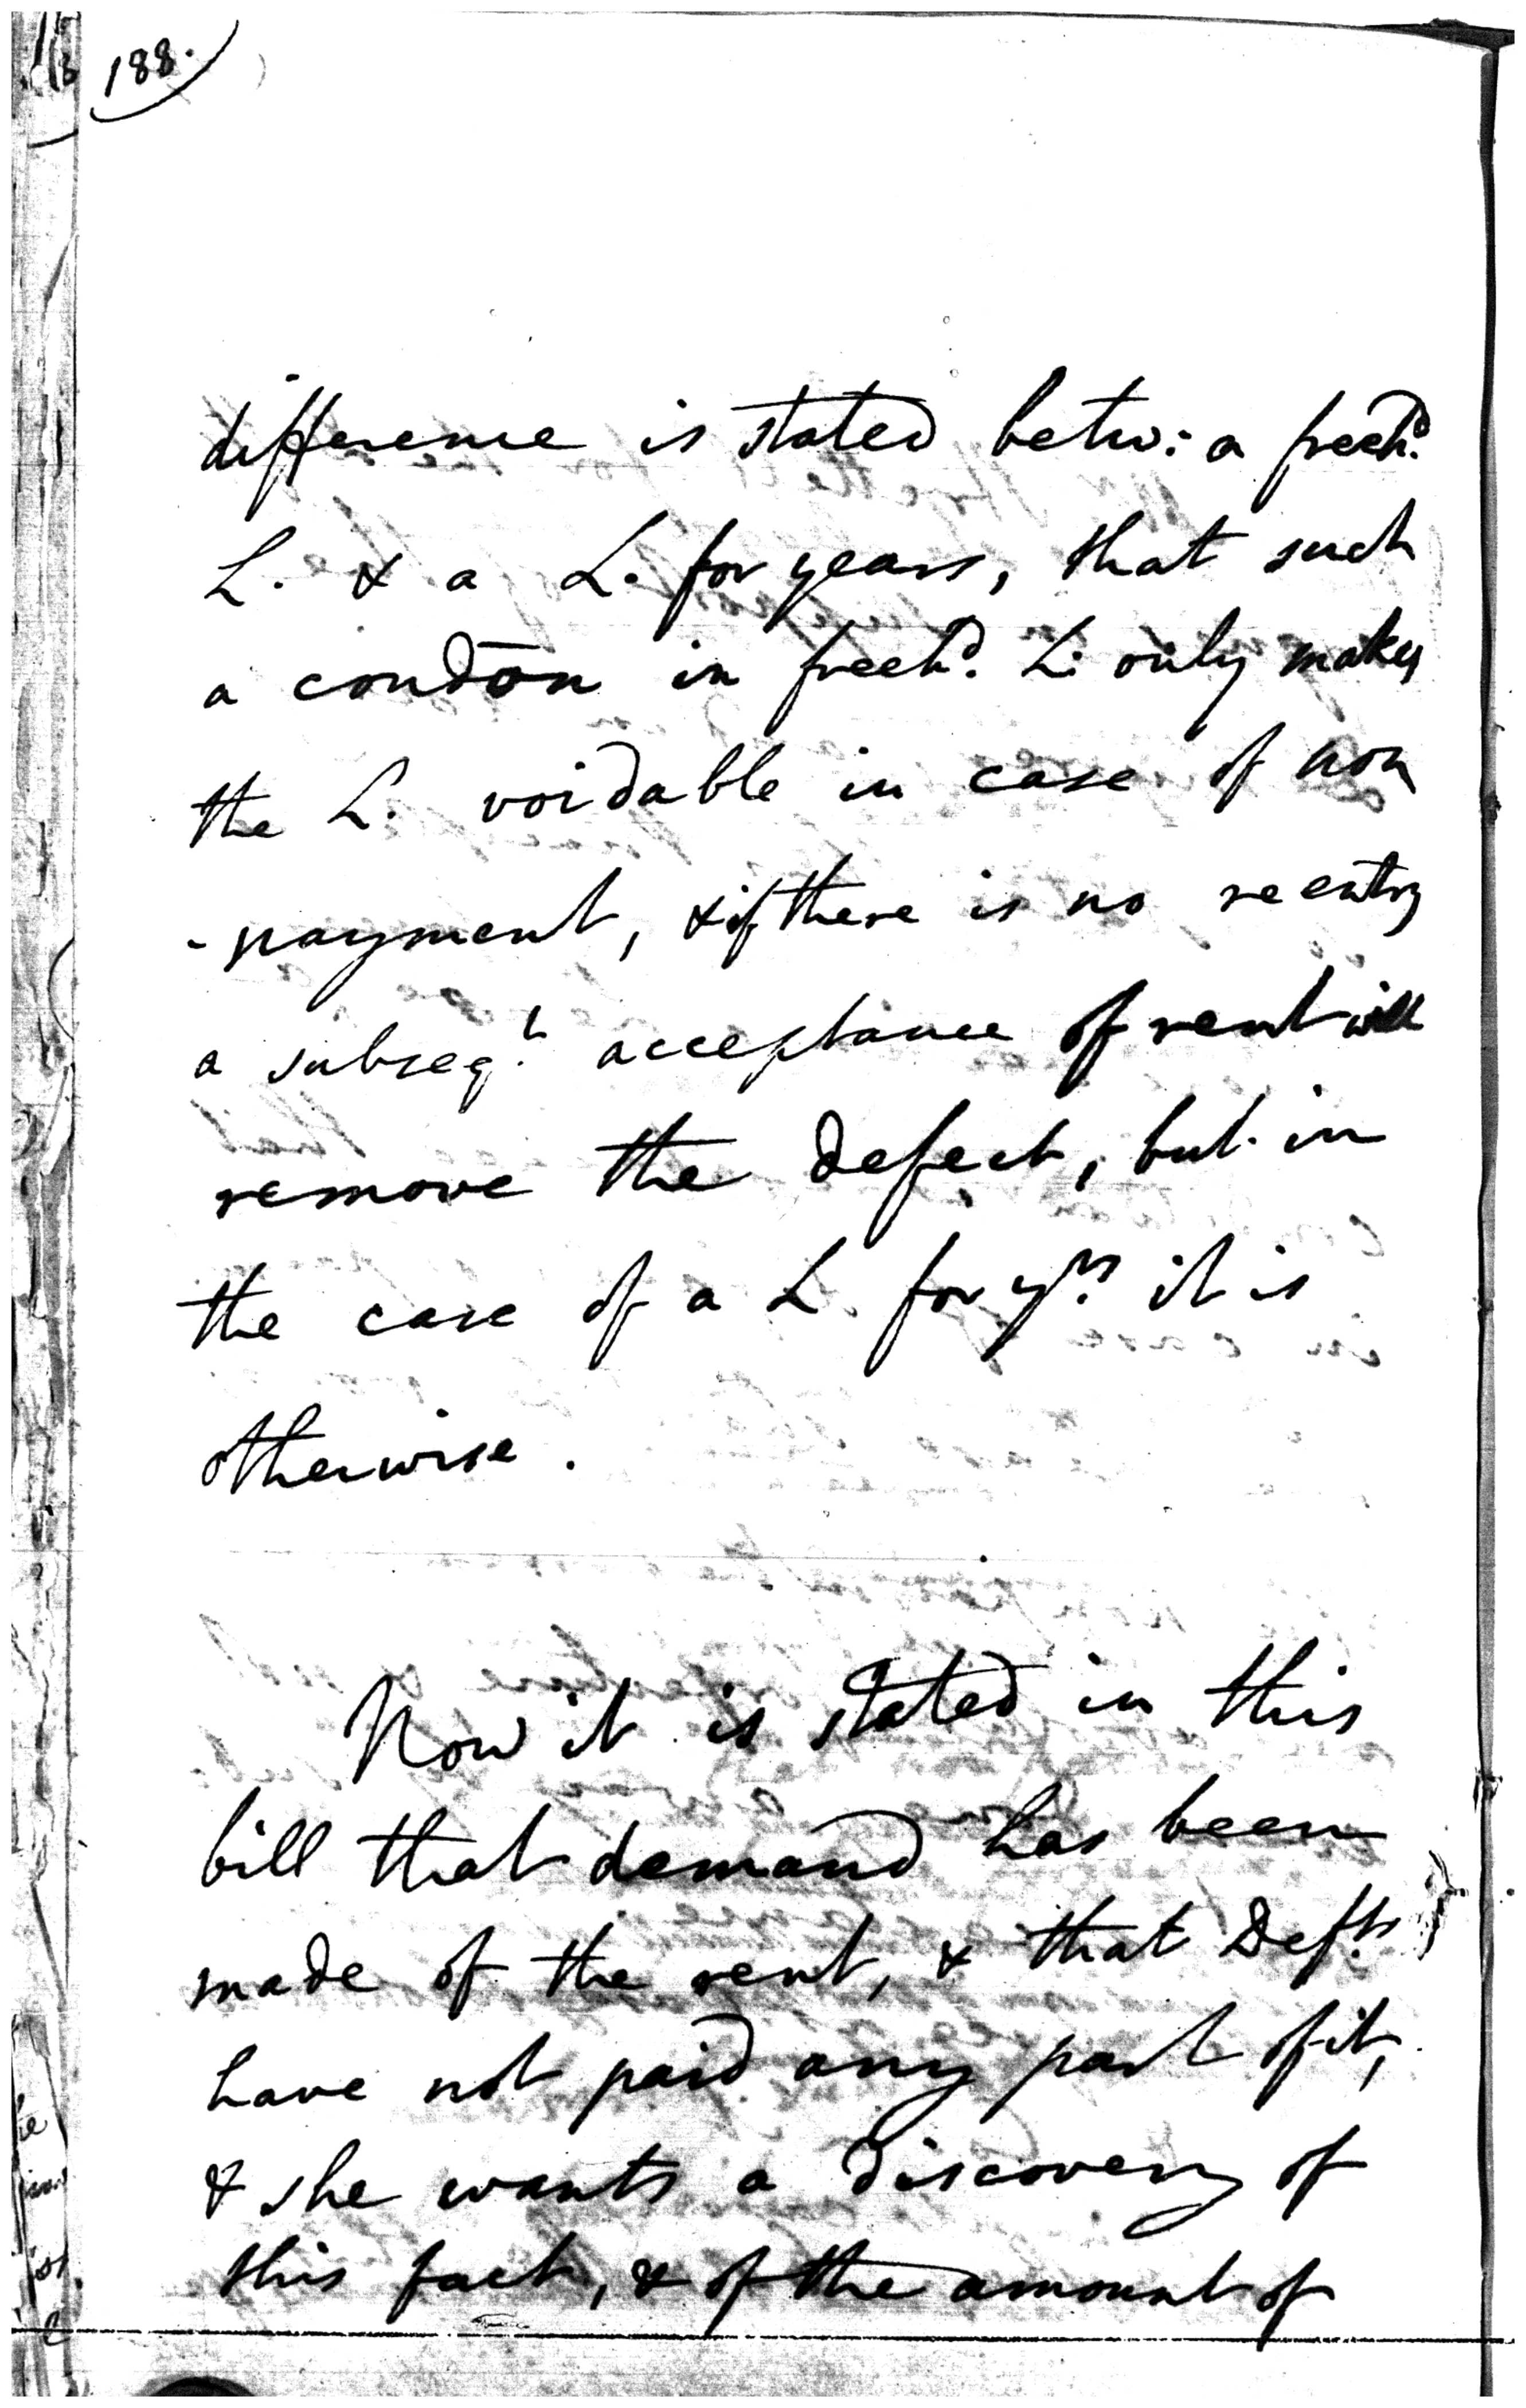 188.
difference is stated betw: a freehd.
L. & a L. for years, that such
a condōn in freehd. L. only makes
the L. voidable in case of non
-payment, & if there is no reentry
a subseqt. acceptance of rent will
remove the defect, but in
the case of a L. for yrs. it is
otherwise.
Now it is stated in this
bill that demand has been
made of the rent, & that Defts.
have not paid any part of it,
& she wants a discovery of
this fact, & of the amount of